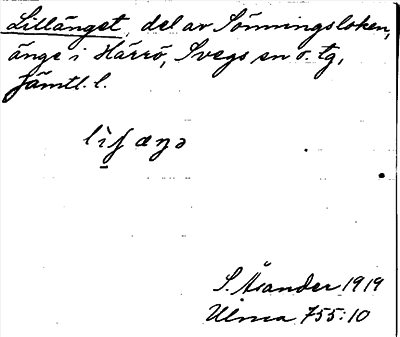 Lillänget, del av Sömningsloken,
änge i Härrö, Svegs sn o. tg,
Jämtl. l.
S. Åsander 1919
Ulma 755:10